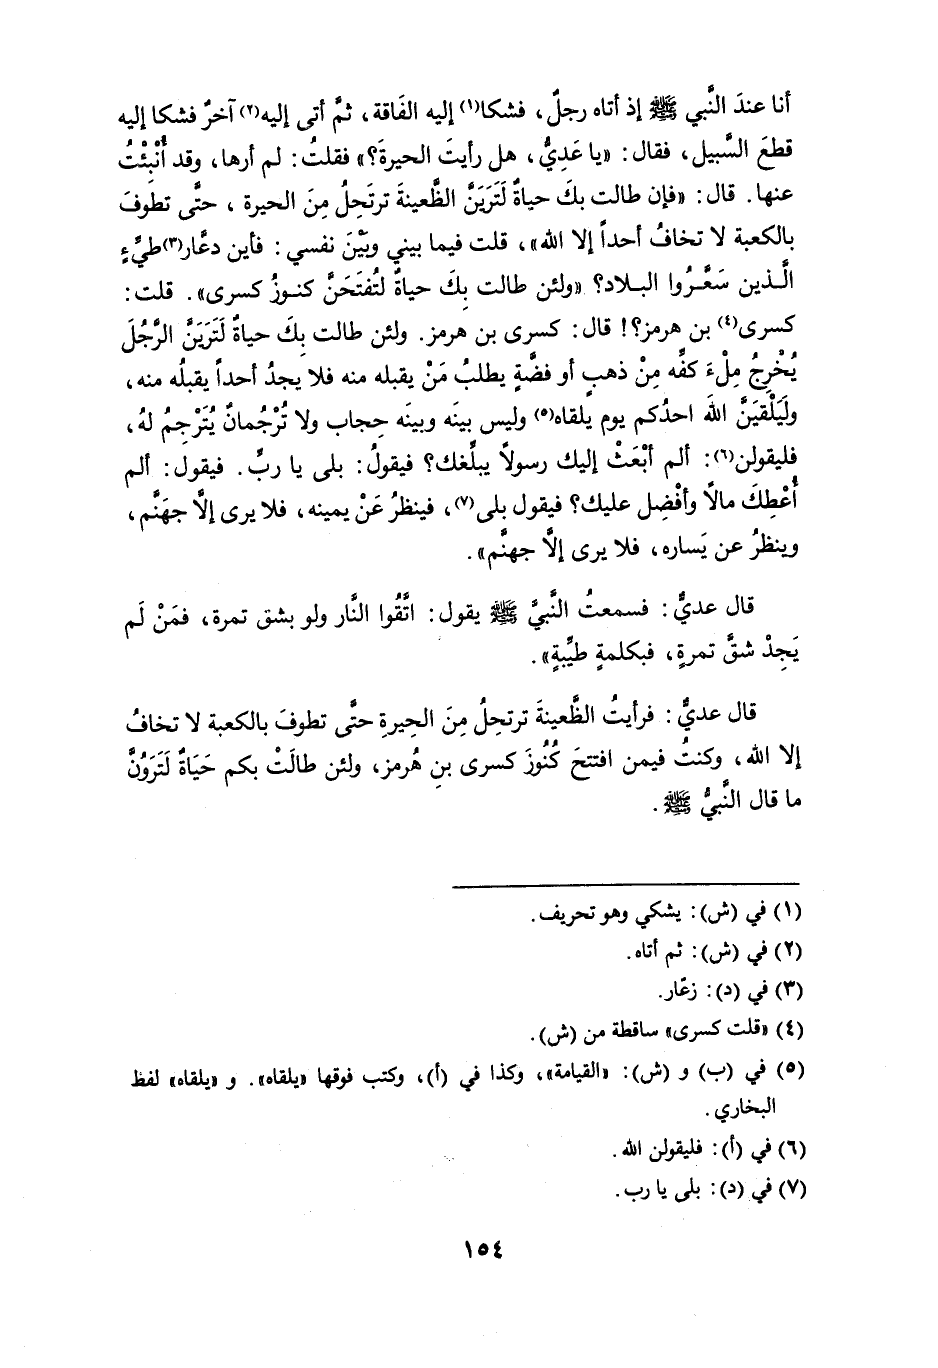 أنا عندَ النَّبي ﷺ إذ أتاه رجلٌ، فشكا(١) إليه الفَاقة، ثمَّ أتى إليه(٢) آخرٌ فشكا إليه
قطعَ السَّبيل، فقال: «يا عَديُّ، هل رأيتَ الحيرةَ؟» فقلتُ: لم أرها، وقد أُنْبِئْتُ
عنها. قال: «فإن طالت بكَ حياةٌ لَتَرَيَنَّ الظَّعينةَ ترتَحِلُ مِنَ الحيرة، حتَّى تطوفَ
بالكعبة لا تخافُ أحداً إلا الله»، قلت فيما بيني وبَيْنَ نفسي: فأين دعَّار(٣) طيِّءٍ
الَّذين سَعَّرُوا البلاد؟ «ولئن طالت بِكَ حياةٌ لتُفتَحَنَّ كنوزُ كسرى». قلت:
كسرى(٤) بن هرمز؟! قال: كسرى بن هرمز. ولئن طالت بِكَ حياةٌ لَتَرَيَنَّ الرَّجُلَ
يُخْرِجُ مِلْءَ كفِّه مِنْ ذهبٍ أو فضَّةٍ يطلبُ مَنْ يقبله منه فلا يجدُ أحداً يقبلُه منه،
ولَيَلْقيَنَّ اللَّهَ احدُكم يوم يلقاه(٥) وليس بينَه وبينَه حِجاب ولا تُرْجُمانٌ يُتَرْجِمُ لهُ،
فليقولن(٦): ألم أبْعَثْ إليك رسولاً يبلِّغك؟ فيقولُ: بلى يا ربِّ. فيقول: ألم
أُعْطِكَ مالًا وأفْضِل عليك؟ فيقول بلى(٧)، فينظرُ عَنْ يمينه، فلا يرى إلَّا جهَنَّم،
وينظرُ عن يَساره، فلا يرى إلَّا جهنَّم».
قال عديٌّ: فسمعتُ النَّبيَّ ﷺ يقول: اتَّقُوا النَّار ولو بشق تمرة، فمَنْ لَم
يَجِدْ شقَّ تمرةٍ، فبكلمةٍ طيِّبةٍ».
قال عديٌّ: فرأيتُ الظَّعينةَ ترتحلُ مِنَ الحِيرةِ حتَّى تطوفَ بالكعبة لا تخافُ
إلا الله، وكنتُ فيمن افتتحَ كُنُوزَ كسرى بنِ هُرمز، ولئن طالَتْ بكم حَيَاةٌ لَتَرَوُنَّ
ما قال النَّبيُّ ﷺ.
(١) في (ش): يشكي وهو تحريف.
(٢) في (ش): ثم أتاه.
(٣) في (د): زعّار.
(٤) «قلت كسرى» ساقطة من (ش).
(٥) في (ب) و (ش): «القيامة»، وكذا في (أ)، وكتب فوقها «يلقاه». و «يلقاه» لفظ
البخاري.
(٦) في (أ): فليقولن الله.
(٧) في (د): بلى يا رب.
١٥٤